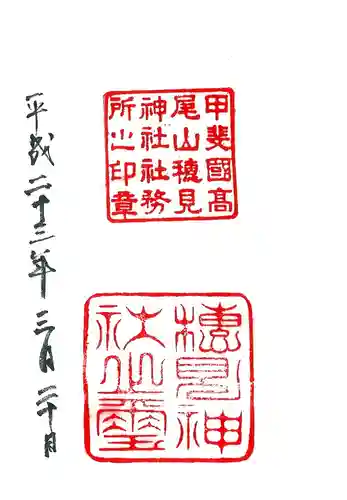 甲斐國高
尾山穗見
神社社務
所之印章
穗見神
社之璽
平成二十三年三月二十日